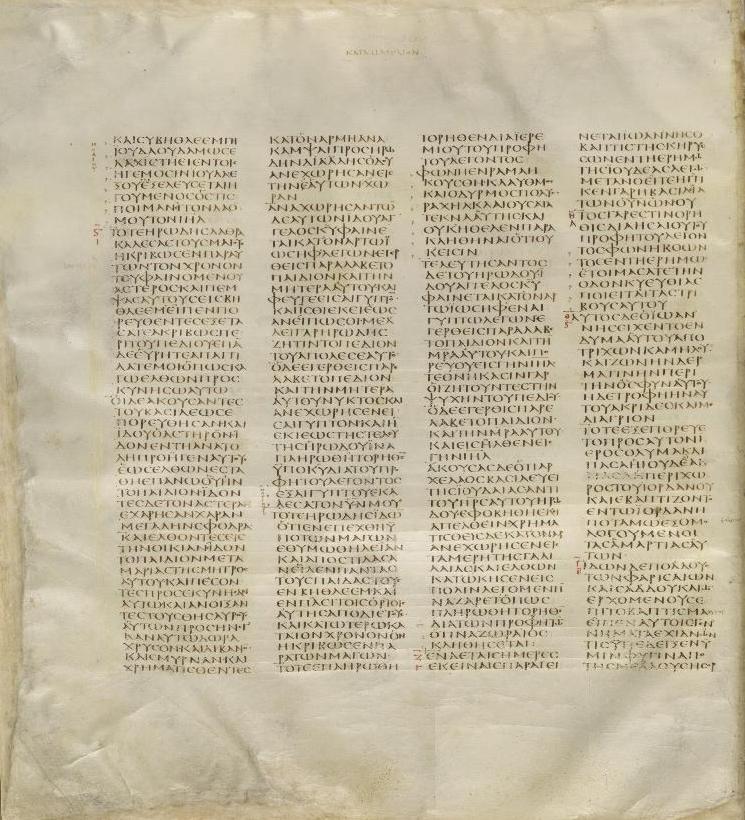 ΚΑΤΑΜΑΘΘΑΙΟΝ
ΚΑΙΣΥΒΗΘΛΕΕΜΓΗ
ΙΟΥΔΑΟΥΔΑΜΩΣΕ
ΛΑΧΙΣΤΗΕΙΕΝΤΟΙΣ
ΗΓΕΜΟΣΙΝΙΟΥΔΑΕ
ΣΟΥΕΞΕΛΕΥΣΕΤΑΙΗ
ΓΟΥΜΕΝΟΣΟΣΤΙΣ
ΠΟΙΜΑΝΙΤΟΝΛΑΟ
ΜΟΥΤΟΝΙΗΛ
ΤΟΤΕΗΡΩΔΗΣΛΑΘΡΑ
ΚΑΛΕΣΑΣΤΟΥΣΜΑΓΟΥΣ
ΗΚΡΙΒΩΣΕΝΠΑΡΑΥ
ΤΩΝΤΟΝΧΡΟΝΟΝ
ΤΟΥΦΑΙΝΟΜΕΝΟΥ
ΑΣΤΕΡΟΣΚΑΙΠΕΜ
ΨΑΣΑΥΤΟΥΣΕΙΣΒΗ
ΘΛΕΕΜΕΙΠΕΝΠΟ
ΡΕΥΘΕΝΤΕΣΕΞΕΤΑ
ΣΑΤΕΑΚΡΙΒΩΣΠΕ
ΡΙΤΟΥΠΕΔΙΟΥΕΠΑ
ΔΕΕΥΡΗΤΕΑΠΑΓΓΙ
ΛΑΤΕΜΟΙΟΠΩΣΚΑ
ΓΩΕΛΘΩΝΠΡΟΣ
ΚΥΝΗΣΩΑΥΤΩ
ΟΙΔΕΑΚΟΥΣΑΝΤΕΣ
ΤΟΥΒΑΣΙΛΕΩΣΕ
ΠΟΡΕΥΘΗΣΑΝΚΑΙ
ΙΔΟΥΟΑΣΤΗΡΟΝΕΙ
ΔΟΝΕΝΤΗΑΝΑΤΟ
ΛΗΠΡΟΗΓΕΝΑΥΤΟΥΣ
ΕΩΣΕΛΘΩΝΕΣΤΑ
ΘΗΕΠΑΝΩΟΥΗΝ
ΤΟΠΑΙΔΙΟΝΙΔΟΝ
ΤΕΣΔΕΤΟΝΑΣΤΕΡΑ
ΕΧΑΡΗΣΑΝΧΑΡΑΝ
ΜΕΓΑΛΗΝΣΦΟΔΡΑ
ΚΑΙΕΛΘΟΝΤΕΣΕΙΣ
ΤΗΝΟΙΚΙΑΝΙΔΟΝ
ΤΟΠΑΙΔΙΟΝΜΕΤΑ
ΜΑΡΙΑΣΤΗΣΜΗΤΡΟΣ
ΑΥΤΟΥΚΑΙΠΕΣΟΝ
ΤΕΣΠΡΟΣΕΚΥΝΗΣΑΝ
ΑΥΤΩΚΑΙΑΝΟΙΞΑΝ
ΤΕΣΤΟΥΣΘΗΣΑΥΡΟΥΣ
ΑΥΤΩΝΠΡΟΣΗΝΕΓ
ΚΑΝΑΥΤΩΔΩΡΑ
ΧΡΥΣΟΝΚΑΙΛΙΒΑΝ
ΚΑΙΣΜΥΡΝΑΝΚΑΙ
ΧΡΗΜΑΤΙΣΘΕΝΤΕΣ
ΚΑΤΟΝΑΡΜΗΑΝΑ
ΚΑΜΨΑΙΠΡΟΣΗΡΩ
ΔΗΝΑΙΑΛΛΗΣΟΔΟΥ
ΑΝΕΧΩΡΗΣΑΝΕΙΣ
ΤΗΝΕΑΥΤΩΝΧΩ
ΡΑΝ
ΑΝΑΧΩΡΗΣΑΝΤΩ
ΔΕΑΥΤΩΝΙΔΟΥΑΓ
ΓΕΛΟΣΚΥΦΑΙΝΕ
ΤΑΙΚΑΤΟΝΑΡΤΩΙ
ΩΣΗΦΛΕΓΩΝΕΓΕΡ
ΘΕΙΣΠΑΡΑΛΑΒΕΤΟ
ΠΑΙΔΙΟΝΚΑΙΤΗΝ
ΜΗΤΕΡΑΑΥΤΟΥΚΑΙ
ΦΕΥΓΕΕΙΣΑΙΓΥΠΤ
ΚΑΙΙΣΘΙΕΚΕΙΕΩΣ
ΑΝΕΙΠΩΣΟΙΜΕΛ
ΛΕΙΓΑΡΗΡΩΔΗΣ
ΖΗΤΙΝΤΟΠΕΔΙΟΝ
ΤΟΥΑΠΟΛΕΣΕΑΥΤ
ΟΔΕΕΓΕΡΘΕΙΣΠΑΡ
ΕΛΑΒΕΤΟΠΕΔΙΟΝ
ΚΑΙΤΗΝΜΗΤΕΡΑ
ΑΥΤΟΥΝΥΚΤΟΣΚΑΙ
ΑΝΕΧΩΡΗΣΕΝΕΙΣ
ΑΙΓΥΠΤΟΝΚΑΙΗΝ
ΕΚΙΕΩΣΤΗΣΤΕΛΕΥ
ΤΗΣΗΡΩΔΟΥΙΝΑ
ΠΛΗΡΩΘΗΤΟΡΗΘΕ
ΥΠΟΚΥΔΙΑΤΟΥΠΡΟ
ΦΗΤΟΥΛΕΓΟΝΤΟΣ
ΕΞΑΙΓΥΠΤΟΥΕΚΑ
ΛΕΣΑΤΟΝΥΝΜΟΥ
ΤΟΤΕΗΡΩΔΗΣΙΔΩ
ΟΤΙΕΝΕΠΕΧΘΗΥ
ΠΟΤΩΝΜΑΓΩΝ
ΕΘΥΜΩΘΗΛΕΙΑΝ
ΚΑΙΑΠΟΣΤΙΛΑΣΑ
ΝΕΙΛΕΝΠΑΝΤΑΣ
ΤΟΥΣΠΑΙΔΑΣΤΟΥΣ
ΕΝΒΗΘΛΕΕΜΚΑΙ
ΕΝΠΑΣΙΤΟΙΣΟΡΙΟΙΣ
ΑΥΤΗΣΑΠΟΔΙΕΤΟΥΣ
ΚΑΙΚΑΤΩΤΕΡΩΚΑ
ΤΑΤΟΝΧΡΟΝΟΝΟΝ
ΗΚΡΙΒΩΣΕΝΠΑ
ΡΑΤΩΝΜΑΓΩΝ
ΤΟΤΕΕΠΛΗΡΩΘΗ
ΤΟΡΗΘΕΝΔΙΑΙΕΡΕ
ΜΙΟΥΤΟΥΠΡΟΦΗ
ΤΟΥΛΕΓΟΝΤΟΣ
ΦΩΝΗΕΝΡΑΜΑΗ
ΚΟΥΣΘΗΚΛΑΥΘΜΟΣ
ΚΑΙΟΔΥΡΜΟΣΠΟΛΥΣ
ΡΑΧΗΛΚΛΑΙΟΥΣΑΤΑ
ΤΕΚΝΑΑΥΤΗΣΚΑΙ
ΟΥΚΗΘΕΛΕΝΠΑΡΑ
ΚΛΗΘΗΝΑΙΟΤΙΟΥ
ΚΕΙΣΙΝ
ΤΕΛΕΥΤΗΣΑΝΤΟΣ
ΔΕΤΟΥΗΡΩΔΟΥΙ
ΔΟΥΑΓΓΕΛΟΣΚΥ
ΦΑΙΝΕΤΑΙΚΑΤΟΝΑΡ
ΤΩΙΩΣΗΦΕΝΑΙ
ΓΥΠΤΩΛΕΓΩΝΕ
ΓΕΡΘΕΙΣΠΑΡΑΛΑΒΕ
ΤΟΠΑΙΔΙΟΝΚΑΙΤΗ
ΜΡΑΑΥΤΟΥΚΑΙΠΟ
ΡΕΥΟΥΕΙΣΓΗΝΙΗΛ
ΤΕΘΝΗΚΑΣΙΝΓΑΡ
ΟΙΖΗΤΟΥΝΤΕΣΤΗΝ
ΨΥΧΗΝΤΟΥΠΕΔΙΟΥ
ΟΔΕΕΓΕΡΘΕΙΣΠΑΡΕ
ΛΑΒΕΤΟΠΑΙΔΙΟΝ
ΚΑΙΤΗΝΜΡΑΑΥΤΟΥ
ΚΑΙΕΙΣΗΛΘΕΝΕΙΣ
ΓΗΝΙΗΛ
ΑΚΟΥΣΑΣΔΕΟΤΙΑΡ
ΧΕΛΑΟΣΒΑΣΙΛΕΥΕΙ
ΤΗΣΙΟΥΔΑΙΑΣΑΝΤΙ
ΤΟΥΠΡΣΑΥΤΟΥΗΡΩ
ΔΟΥΕΦΟΒΗΘΗΕΚΕΙ
ΑΠΕΛΘΕΙΝΧΡΗΜΑ
ΤΙΣΘΕΙΣΔΕΚΑΤΟΝΑΡ
ΑΝΕΧΩΡΗΣΕΝΕΙΣ
ΤΑΜΕΡΗΤΗΣΓΑΛΙ
ΛΑΙΑΣΚΑΙΕΛΘΩΝ
ΚΑΤΩΚΗΣΕΝΕΙΣ
ΠΟΛΙΝΛΕΓΟΜΕΝΗ
ΝΑΖΑΡΕΤΟΠΩΣ
ΠΛΗΡΩΘΗΤΟΡΗΘΕ
ΔΙΑΤΩΝΠΡΟΦΗΤΩ
ΟΤΙΝΑΖΩΡΑΙΟΣ
ΚΛΗΘΗΣΕΤΑΙ
ΕΝΔΕΤΑΙΣΗΜΕΡΕΣ
ΕΚΕΙΝΑΙΣΠΑΡΑΓΕΙ
ΝΕΤΑΙΙΩΑΝΝΗΣΟ
ΒΑΠΤΙΣΤΗΣΚΗΡΥΣ
ΣΩΝΕΝΤΗΕΡΗΜΩ
ΤΗΣΙΟΥΔΕΑΣΛΕΓΩ
ΜΕΤΑΝΟΕΙΤΕΗΓΓΙ
ΚΕΝΓΑΡΗΒΑΣΙΛΕΙΑ
ΤΩΝΟΥΝΩΝΟΥ
ΤΟΣΓΑΡΕΣΤΙΝΟΡΗ
ΘΙΣΔΙΑΗΣΑΙΟΥΤΟΥ
ΠΡΟΦΗΤΟΥΛΕΓΟΝ
ΤΟΣΦΩΝΗΒΟΩΝ
ΤΟΣΕΝΤΗΕΡΗΜΩ
ΕΤΟΙΜΑΣΑΤΕΤΗΝ
ΟΔΟΝΚΥΕΥΘΙΑΣ
ΠΟΙΕΙΤΑΙΤΑΣΤΡΙ
ΒΟΥΣΑΥΤΟΥ
ΑΥΤΟΣΔΕΟΙΩΑΝ
ΝΗΣΕΙΧΕΝΤΟΕΝ
ΔΥΜΑΑΥΤΟΥΑΠΟ
ΤΡΙΧΩΝΚΑΜΗΛΟΥ
ΚΑΙΖΩΝΗΝΔΕΡ
ΜΑΤΙΝΗΝΠΕΡΙ
ΤΗΝΟΣΦΥΝΑΥΤΟΥ
ΗΔΕΤΡΟΦΗΗΝΑΥ
ΤΟΥΑΚΡΙΔΕΣΚΑΙΜΕ
ΛΙΑΓΡΙΟΝ
ΤΟΤΕΕΞΕΠΟΡΕΥΕ
ΤΟΠΡΟΣΑΥΤΟΝΙ
ΕΡΟΣΟΛΥΜΑΚΑΙ
ΠΑΣΑΗΙΟΥΔΑΙΑΚΑΙ
ΠΑΣΑΗΠΕΡΙΧΩ
ΡΟΣΤΟΥΙΟΡΔΑΝΟΥ
ΚΑΙΕΒΑΠΤΙΖΟΝΤΟ
ΕΝΤΩΙΟΡΔΑΝΗ
ΠΟΤΑΜΩΕΞΟΜΟ
ΛΟΓΟΥΜΕΝΟΙ
ΤΑΣΑΜΑΡΤΙΑΣΑΥ
ΤΩΝ
ΙΔΩΝΔΕΠΟΛΛΟΥΣ
ΤΩΝΦΑΡΙΣΑΙΩΝ
ΚΑΙΣΑΔΔΟΥΚΑΙΩ
ΕΡΧΟΜΕΝΟΥΣΕ
ΠΙΤΟΒΑΠΤΙΣΜΑ
ΕΙΠΕΝΑΥΤΟΙΣΓΕΝ
ΝΗΜΑΤΑΕΧΙΔΝΩΝ
ΤΙΣΥΠΕΔΕΙΞΕΝΥ
ΜΙΝΦΥΓΙΝΑΠΟ
ΤΗΣΜΕΛΛΟΥΣΗΣΟΡ